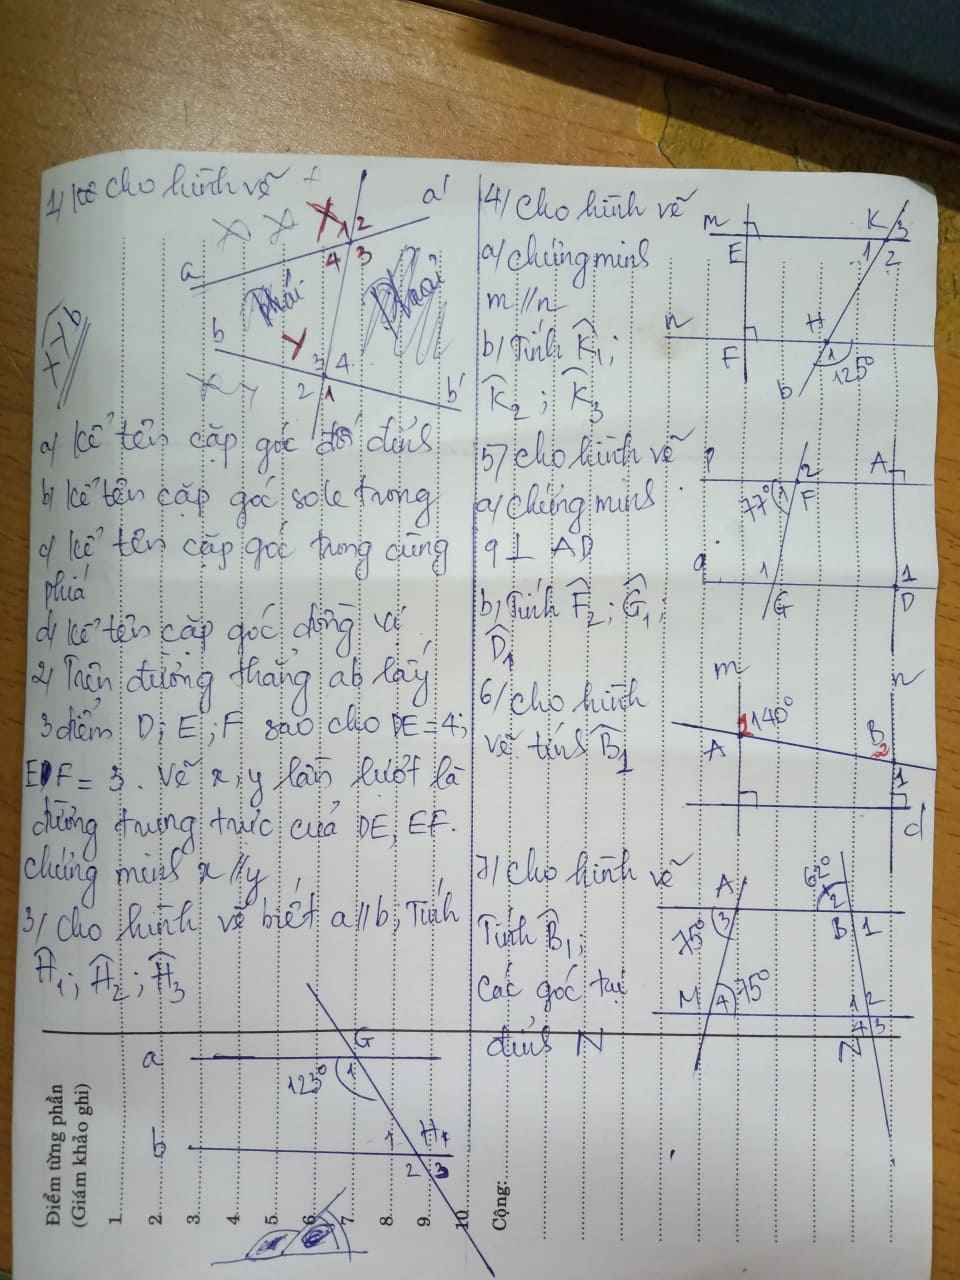 1/ cho hình vẽ
a'
1 2
4 3
a
phải
b
3 4
2 1
b'
a/ kể tên cặp góc đối đỉnh
b/ kể tên cặp góc sole trong
c/ kể tên cặp góc trong cùng
phía
d/ kể tên cặp góc đồng vị
2/ Trên đường thẳng ab lấy
3 điểm D; E; F sao cho DE = 4;
EF = 3. vẽ x, y lần lượt là
đường trung trực của DE, EF.
chứng minh x // y
3/ cho hình vẽ biết a // b; Tính
Ĥ1; Ĥ2; Ĥ3
a
G
123°
1
b
1
H
2 3
4/ cho hình vẽ
a/ chứng minh
m // n
b/ Tính K̂1;
K̂2; K̂3
m
E
K 3
1 2
n
F
H
1
125°
b
5/ cho hình vẽ
a/ chứng minh
q ⊥ AD
b/ Tính F̂2; Ĝ1;
D̂1
p
2
77° 1
F
A
q
1
G
1
D
6/ cho hình
vẽ tính B̂1
m
n
2 140°
A
B 2
1
d
7/ cho hình vẽ
Tính B̂1;
các góc tại
đỉnh N
A
3
75°
62°
2
B 1
M 4 75°
1 2
4 3
N
Điểm từng phần
(Giám khảo ghi)
1.
2.
3.
4.
5.
6.
7.
8.
9.
10.
Cộng: